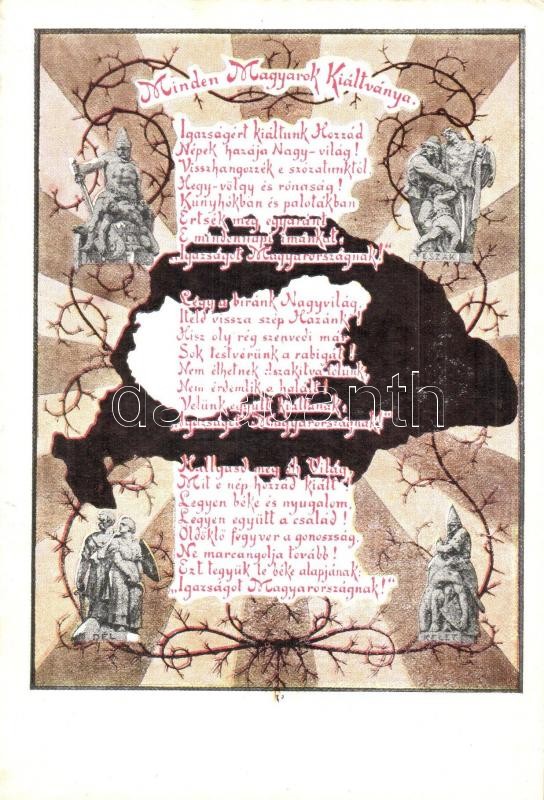 Minden Magyarok Kiáltványa.
Igazságért kiáltunk Hozzád
Népek hazája Nagy-világ!
Visszhangozzék e szózatunktól
Hegy-völgy és rónaság!
Kunyhókban és palotákban
Értsék meg egyaránt
E mindennapi imánkat
„Igazságot Magyarországnak!"
ÉSZAK
Légy a bíránk Nagyvilág,
Ítéld vissza szép Hazánk
Hisz oly rég szenvedi már
Sok testvérünk a rabigát!
Nem élhetnek elszakítva tőlünk,
Nem érdemlik a halált!
Velünk együtt kiáltanak:
„Igazságot Magyarországnak!"
darabanth
Hallgasd meg óh Világ,
Mit e nép hozzád kiált
Legyen béke és nyugalom,
Legyen együtt a család!
Öldöklő fegyver a gonoszság,
Ne marcangolja tovább!
Ezt tegyük le béke alapjának:
„Igazságot Magyarországnak!"
DÉL
KELET